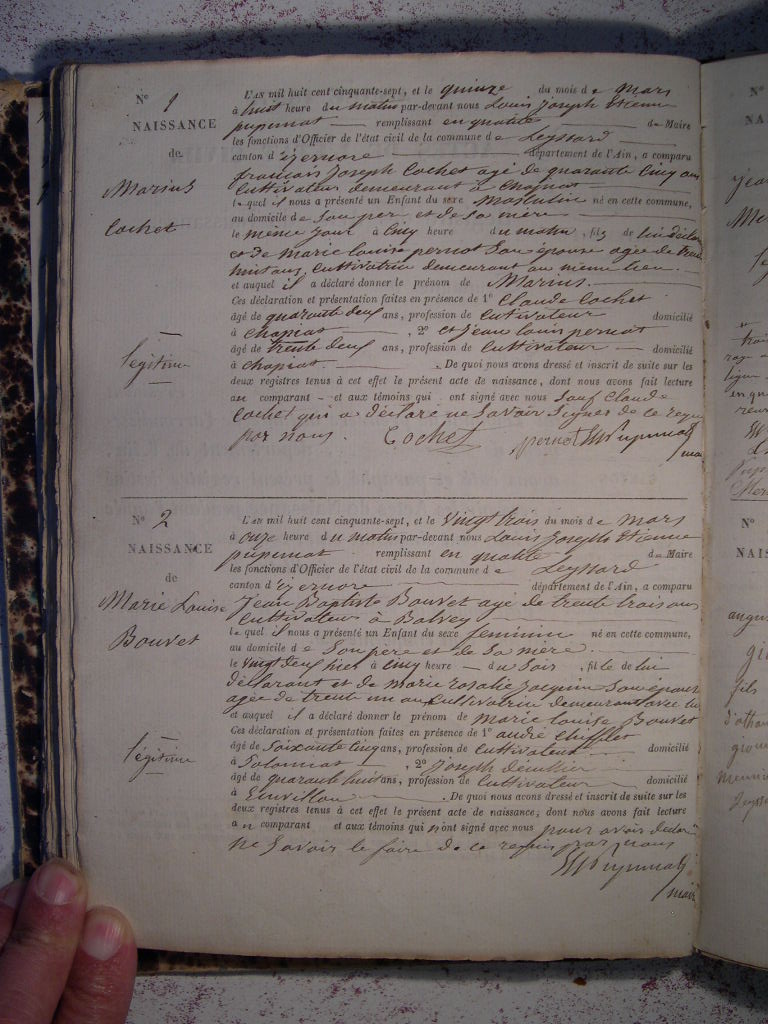 N° 1
NAISSANCE
de
Marius
Cochet
légitime
L'AN mil huit cent cinquante-sept, et le quinze du mois de Mars
à huit heure du matin par-devant nous Louis Joseph Etienne
pupunat remplissant en qualité de Maire
les fonctions d'Officier de l'état civil de la commune de Leyssard
canton d'izernore département de l'Ain, a comparu
françois Joseph Cochet agé de quarante Cinq ans
Cultivateur demeurant à Chapiat
lequel il nous a présenté un Enfant du sexe Masculin né en cette commune,
au domicile de Son per et de Sa mère
le même jour à Cinq heure du matin, fils de lui déclar
et de marie louise pernot Son épouse agée de trente
huit ans, Cultivatrice demeurant au même lieu.
et auquel il a déclaré donner le prénom de Marius.
Ces déclaration et présentation faites en présence de 1° Claude Cochet
âgé de quarante deuf ans, profession de Cutivateur domicilié
à Chapiat, 2° et jean louis pernot
âgé de trente deuf ans, profession de Cultivateur domicilié
à chapiat. De quoi nous avons dressé et inscrit de suite sur les
deux registres tenus à cet effet le présent acte de naissance, dont nous avons fait lecture
au comparant et aux témoins qui ont signé avec nous Sauf Claude
Cochet qui a déclaré ne Savoir Signer de ce requi
par nous. Cochet pernot Pupunat
mai
N° 2
NAISSANCE
de
Marie Louise
Bouvet
légitime
L'AN mil huit cent cinquante-sept, et le Vingt trois du mois de Mars
à onze heure du matin par-devant nous Louis Joseph Etienne
pupunat remplissant en qualité de Maire
les fonctions d'Officier de l'état civil de la commune de Leyssard
canton d'izernore département de l'Ain, a comparu
Jean Baptiste Bouvet agé de trente trois ans
Cultivateur à Balvey
lequel il nous a présenté un Enfant du sexe feminin né en cette commune,
au domicile de Son père et de Sa mère.
le Vingt deuf hier à Cinq heure du Soir, fille de lui
déclarant et de marie rosalie Son épouse
agée de trente un an Cultivatrice demeurant avec lui
et auquel il a déclaré donner le prénom de marie louise Bouvet
Ces déclaration et présentation faites en présence de 1° andré
âgé de Soixante Cinq ans, profession de Cultivateur domicilié
à Solomiat, 2° Joseph
âgé de quarante huit ans, profession de Cultivateur domicilié
à . De quoi nous avons dressé et inscrit de suite sur les
deux registres tenus à cet effet le présent acte de naissance, dont nous avons fait lecture
au comparant et aux témoins qui n'ont signé avec nous pour avoir déclaré
ne Savoir le faire de ce requis par nous
Pupunat
mair